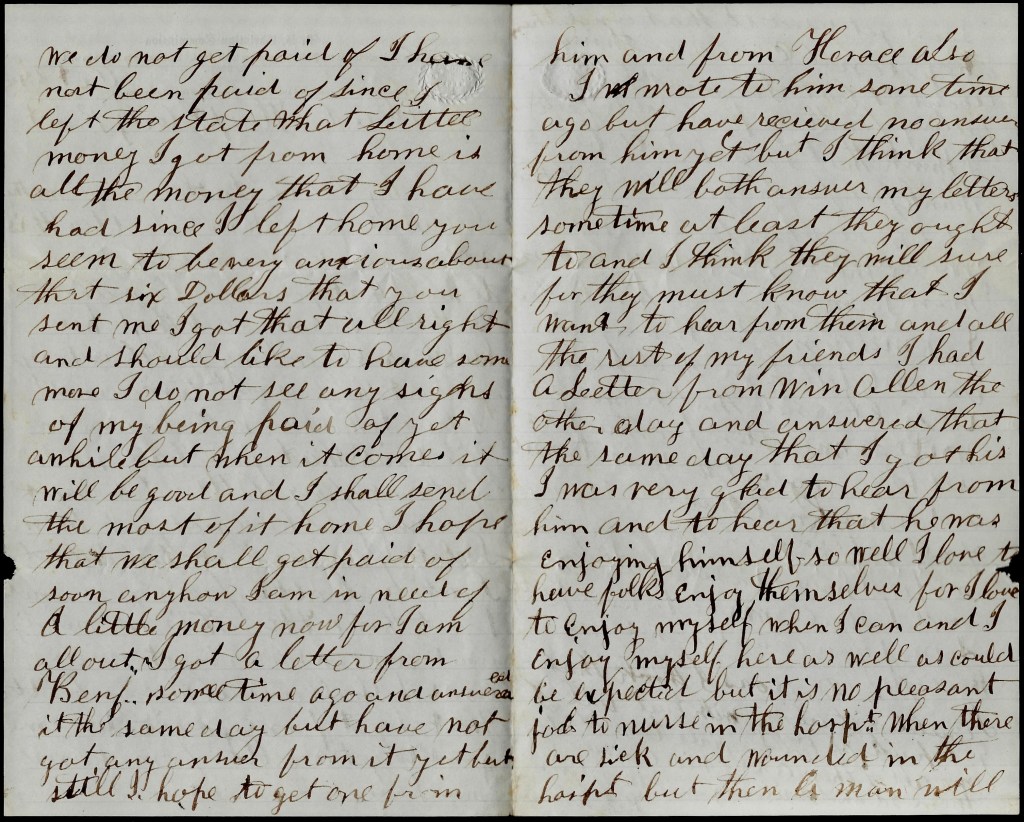 we do not get paid of I have
not been paid of since I
left the state What Little
money I got from home is
all the money that I have
had since I left home you
seem to be very anxious about
that six Dollars that you
sent me I got that all right
and should like to have som
more I do not see any sighns
of my being paid of yet
awhile but when it comes it
will be good and I shall send
the most of it home I hope
that we shall get paid of
soon anyhow I am in need of
a little money now for I am
all out. I got a letter from
Benj.. sometime ago and answered
it the same day but have not
got any answer from it yet but
still I hope to get one from
him and from Horace also
I wrote to him sometime
ago but have recieved no answer
from him yet but I think that
they will both answer my letters
sometime at least they ought
to and I think they will sure
for they must know that I
want to hear from them and all
the rest of my friends I had
a Letter from Win Allen the
other day and answered that
the same day that I got his
I was very glad to hear from
him and to hear that he was
enjoying himself so well I love to
have folks enjoy themselves for I love
to enjoy myself when I can and I
enjoy myself here as well as could
be expected but it is no pleasant
job to nurse in the hospt. when there
are sick and wounded in the
hospt but then a man will